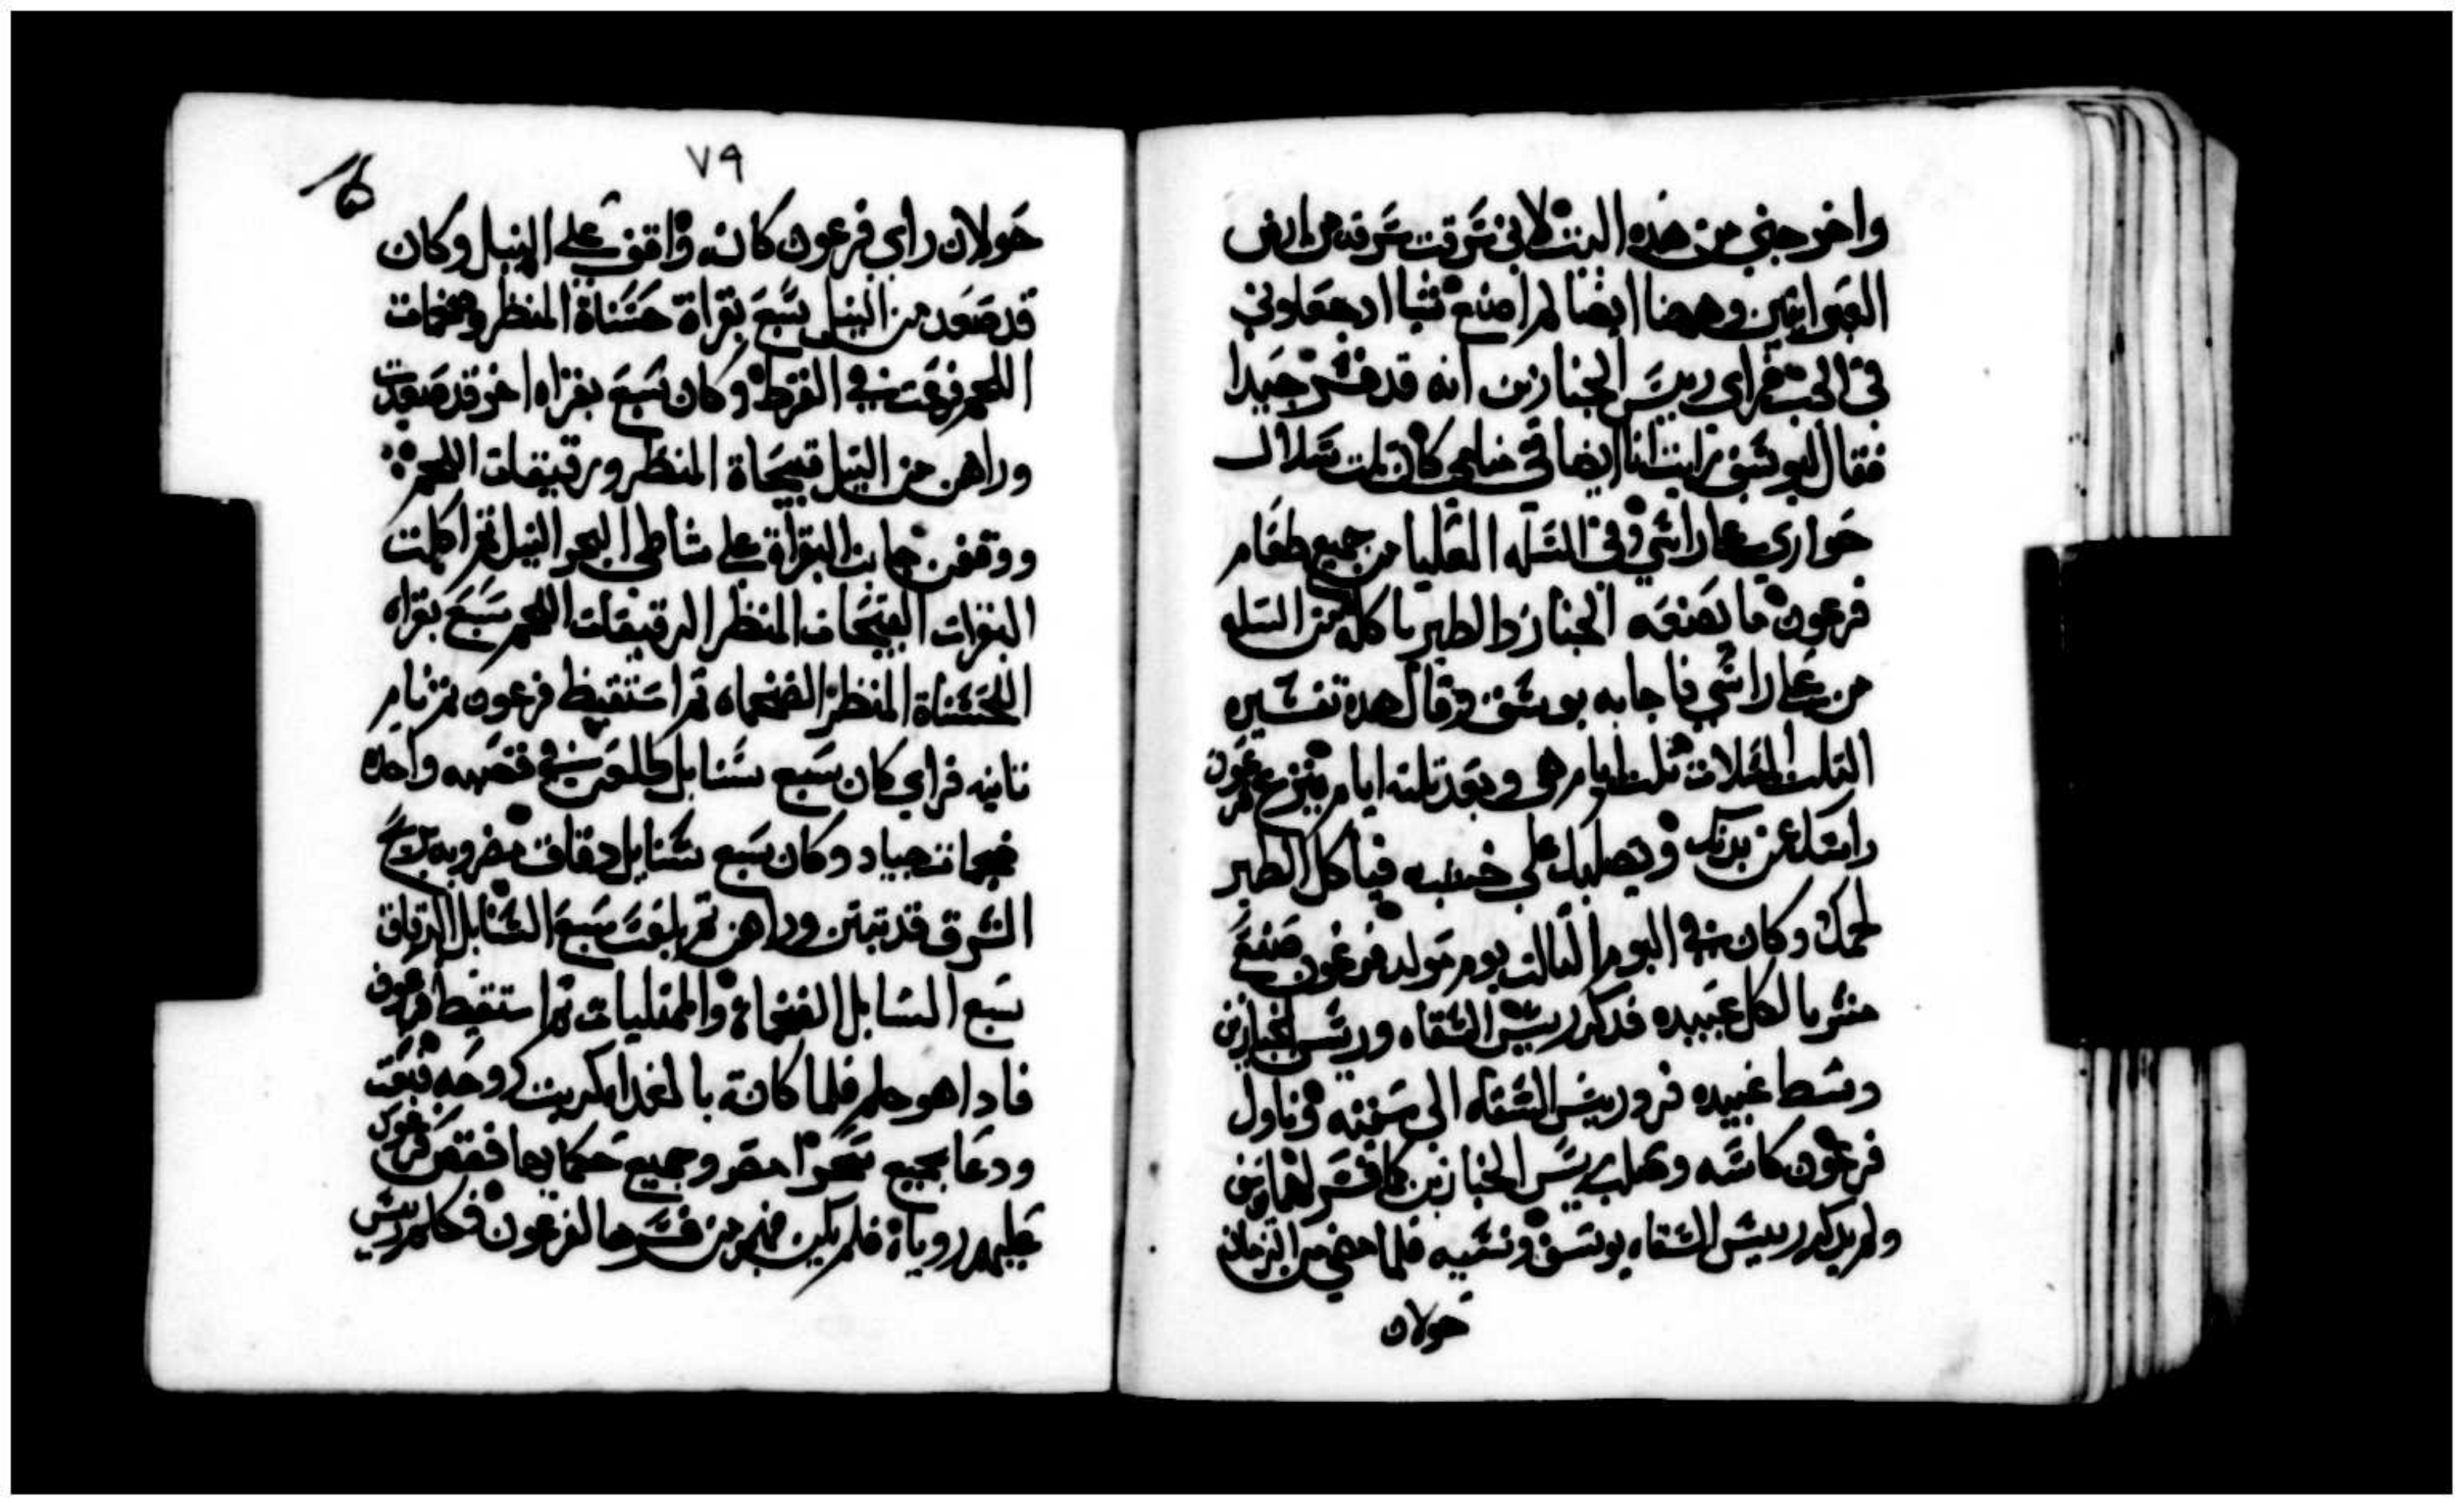 واخرجني من هذه البيت لاني سرقت سرقه من ارض
العبرانيين وههنا ايضا لم اصنع شيا اد جعلوني
في الجب فراي رييس الخبازين انه قد فسر جيدا
فقال ليوسف رايت انا ايضا في منامي كان تلت سلال
حواري علي راسي وفي السله العليا من جميع طعام
فرعون ما يصنعه الخباز والطير ياكله من السله
من علي راسي فاجابه يوسف وقال هده تفسيره
التلت السلات تلت ايام هي وبعد تلته ايام ينزع فرعون
راسك عن بدنك ويصلبك علي خشبه فياكل الطير
لحمك وكان في اليوم التالت يوم مولد فرعون صنع
مشربا لكل عبيده فدكر رييس السقاه ورييس الخبازين
وسط عبيده فرد رييس السقاه الي سقيته وناول
فرعون كاسه وصلب رييس الخبازين كما فسر لهما يوسف
ولم يدكر رييس السقاه يوسف ونسيه فلما مضي من الزمان
حولان
٧٩
حولان راي فرعون كانه واقف علي النيل وكان
قد صعد من النيل سبع بقراة حسناة المنظر وضخمات
اللحم فرعت في القرط وكان سبع بقراه اخر قد صعدت
وراهن من النيل قبيحاة المنظر ورقيقات اللحم
ووقفن جانب البقراة علي شاطي البحر النيل تم اكلت
البقرات القبيحات المنظر الرقيقات اللحم سبع بقراه
الحسناة المنظر الضخماه تم استيقظ فرعون تم نام
تانيه فراي كان سبع سنابل طلعت في قصبه واحده
ضخمات جياد وكان سبع سنابل دقاق مضروبه بريح
الشرق قد نبتن وراهن تم بلعت سبع السنابل الدقاق
سبع السنابل الضخماة والممتليات تم استيقظ فرعون
فادا هو حلم فلما كانة بالغداه كربت روحه فبعت
ودعا بجميع سحرا مصر وجميع حكمايها فقص فرعون
عليهم روياه فلم يكن منهم من فسرها لفرعون فكلم رييس